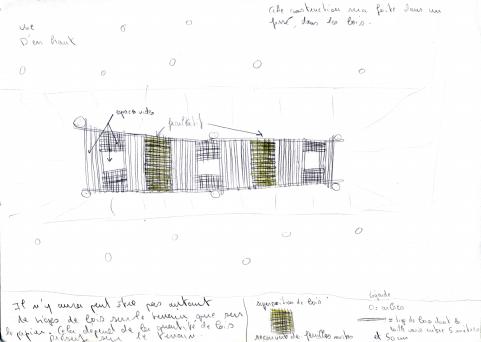 Cette construction sera faite dans un
fossé, dans les bois.
vue
D'en haut
espaces vides
feuilles
Il n'y aura peut être pas autant
de tiges de bois sur le terrain que sur
le papier. Cela dépend de la quantité de bois
présente sur le terrain.
superposition de bois
recouverte de feuilles mortes
Légende
O = arbres
= tige de bois dont la
taille varie entre 5 mètres
et 50 cm